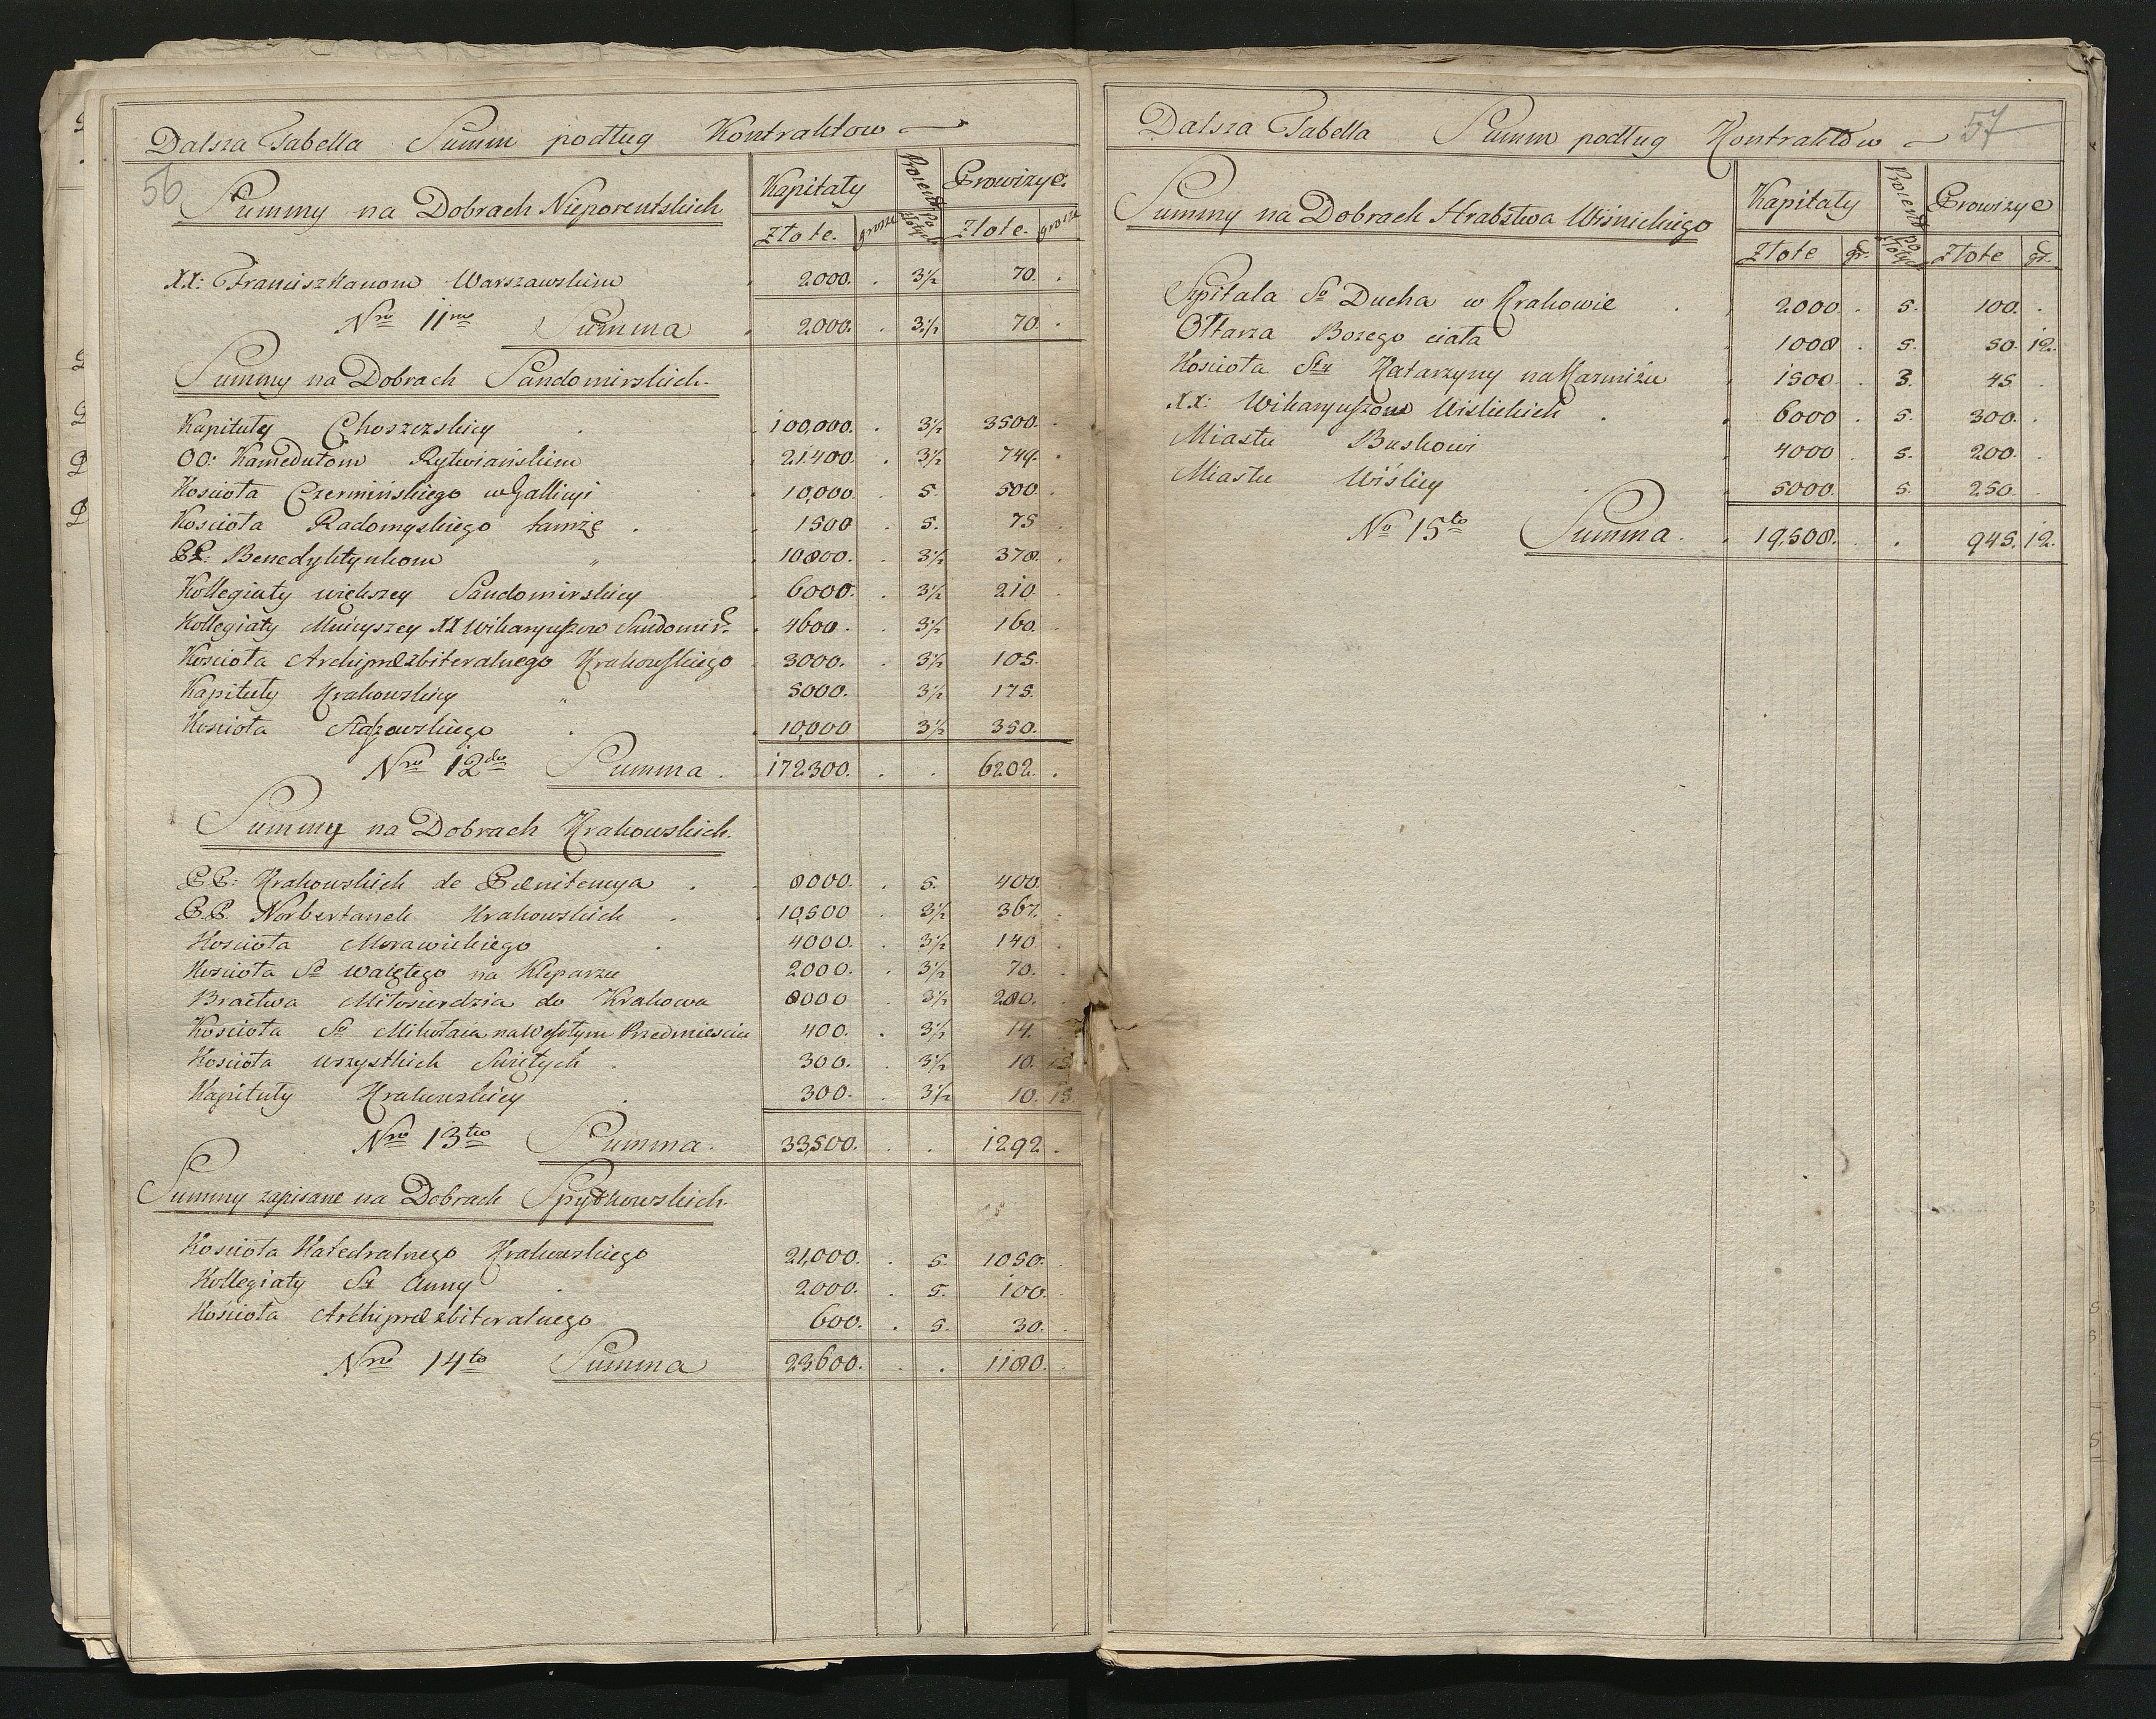 Dalsza Tabella Summ podług Kontraktow
56
Summy na Dobrach Nieporentskich
Kapitały Procent po Złotych Prowizye
Złote. grosze Złote. grosze
XX: Franciszkanom Warszawskim . 2000. . 3½ 70. .
Nro 11mo Summa . 2000. . 3½ 70. .
Summy na Dobrach Sandomirskich.
Kapituły Choszczskiey . 100,000. . 3½ 3500. .
OO: Kamedułom Rytwiańskim . 21400. . 3½ 749. .
Kościoła Czermińskiego w Gallicyi . 10,000. . 5. 500. .
Kościoła Radomyskiego tamże . 1500 . 5. 75 .
PP. Benedyktynkom " . 10800. . 3½ 378. .
Kollegiaty większey Sandomirskiey . 6000. . 3½ 210. .
Kollegiaty Mnieyszey XX Wikaryuszow Sandomir: . 4600. . 3½ 160. .
Kościoła Archipræzbiteralnego Krakowskiego . 3000. . 3½ 105.
Kapituły Krakowskiey " 5000. 3½ 175.
Kościoła Staszowskiego . 10,000 3½ 350.
Nro 12do Summa . 172300. . . 6202. .
Summy na Dobrach Krakowskich.
PP: Krakowskich de Pœnitencya . . 8000. . 5. 400. .
PP. Norbertanek Krakowskich . . 10,500 . 3½ 367. .
Kościoła Morawickiego . 4000. . 3½ 140 .
Kościoła So Walętego na Kleparzu 2000. . 3½ 70. .
Bractwa Miłosierdzia do Krakowa 8000 . 3½ 280. .
Kościoła So Mikołaia na Wesołym Przedmieściu 400. . 3½ 14.
Kościoła wszystkich Świętych . 300. . 3½ 10. 15.
Kapituły Krakowskiey . 300. . 3½ 10. 15.
Nro 13tio Summa. 33,500. . . 1292 .
Summy zapisane na Dobrach Spytkowskich.
Kościoła Katedralnego Krakowskiego 21,000. . 5. 1050. .
Kollegiaty St Anny . 2000. . 5. 100. .
Kościoła Archipræzbiteralnego 600. . 5. 30. .
Nro 14to Summa 23,600. . . 1180. .
Dalsza Tabella Summ podług Kontraktów
57
Summy na Dobrach Hrabstwa Wiśnickiego
Kapitały Procent po Złotych Prowizye
Złote gr. Złote gr.
Szpitala So Ducha w Krakowie . . 2000 . 5. 100. .
Ołtarza Bozego ciała . 1008 . 5. 50. 12.
Kościoła Stey Katarzyny na Kazmiżu . 1500 . 3. 45 .
XX: Wikaryuszow Wislickich . . 6000 . 5. 300. .
Miastu Buskowi 4000 . 5. 200. .
Miastu Wiślicy . 5000. 5. 250. .
No 15to Summa . . 19,508. . . 945. 12.